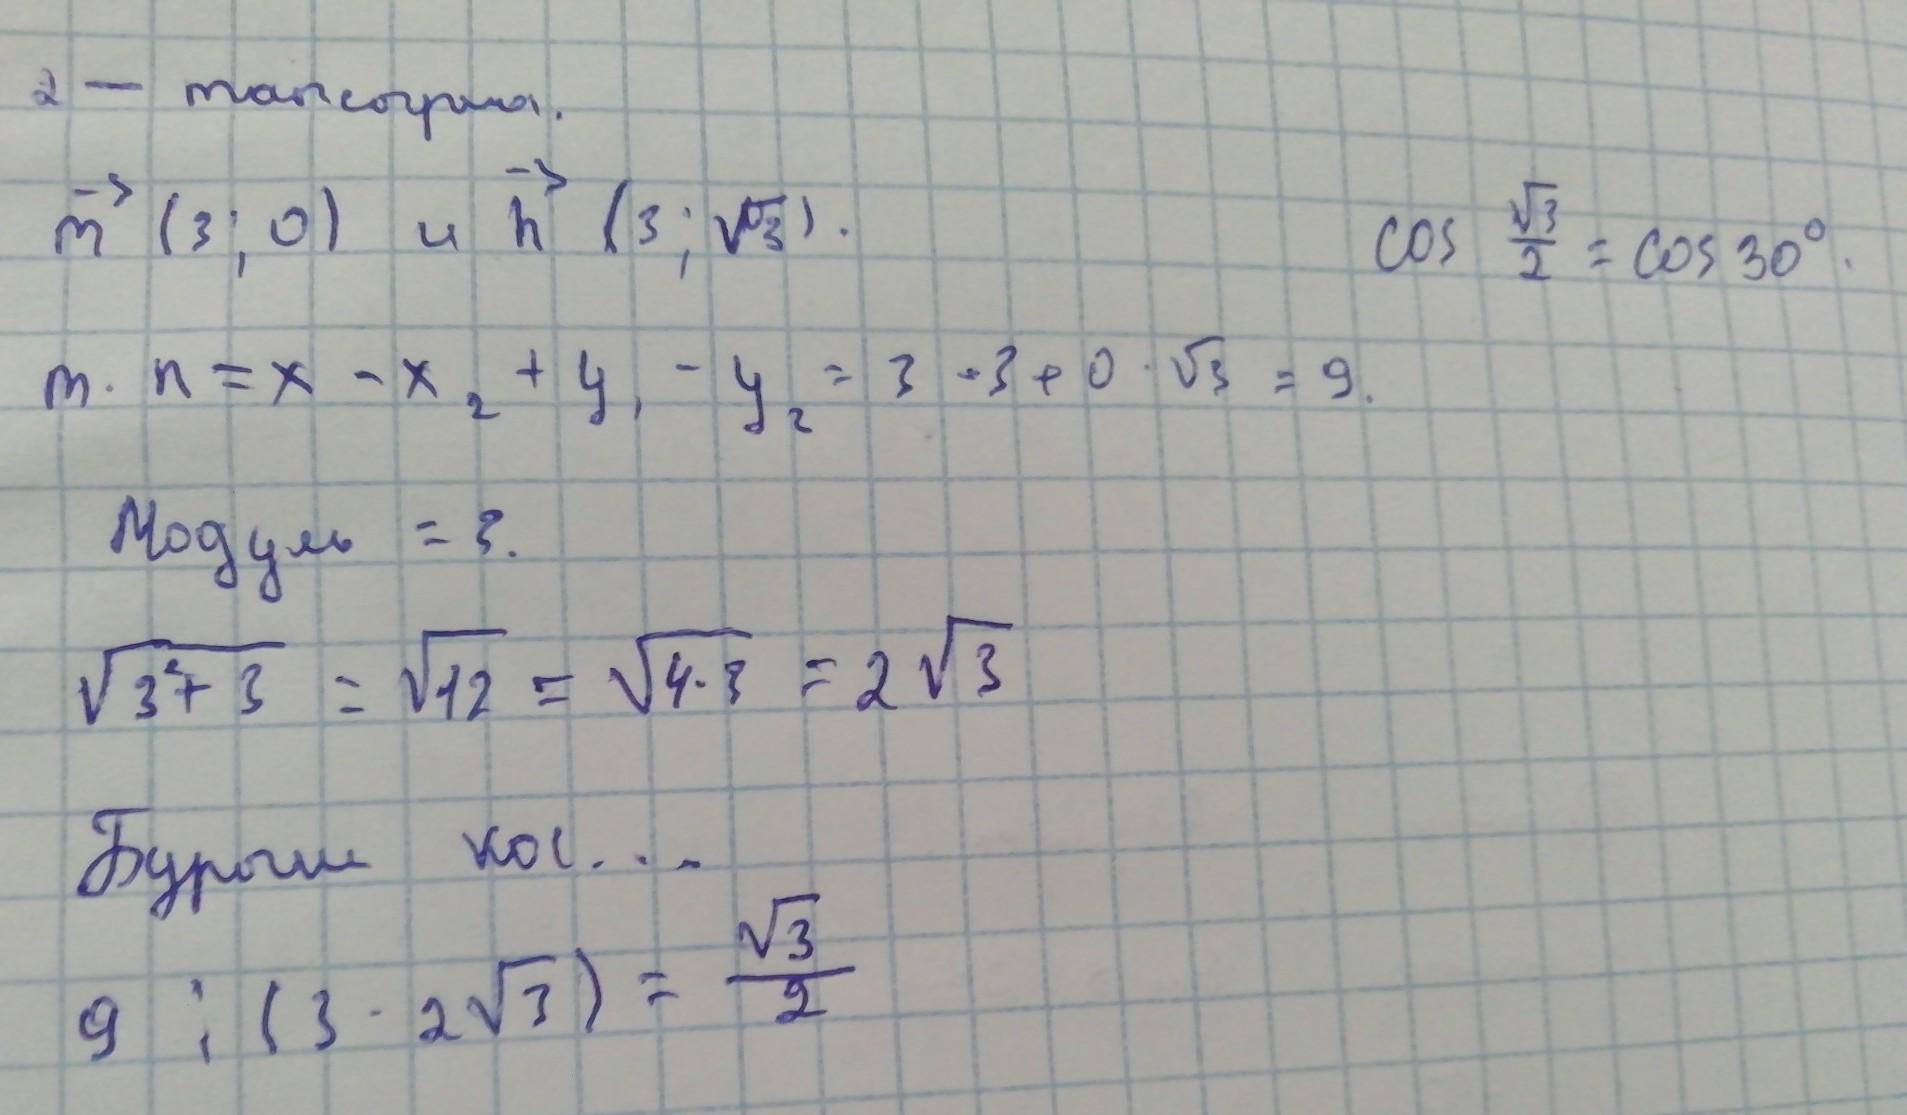 2 – тапсырма.
m⃗ (3; 0) и n⃗ (3; √3).
cos √3/2 = cos 30°.
m · n = x - x₂ + y₁ - y₂ = 3 · 3 + 0 · √3 = 9.
Модуль = 3.
√(3² + 3) = √12 = √(4·3) = 2√3
Бұрыш кос...
9 : (3 · 2√3) = √3/2